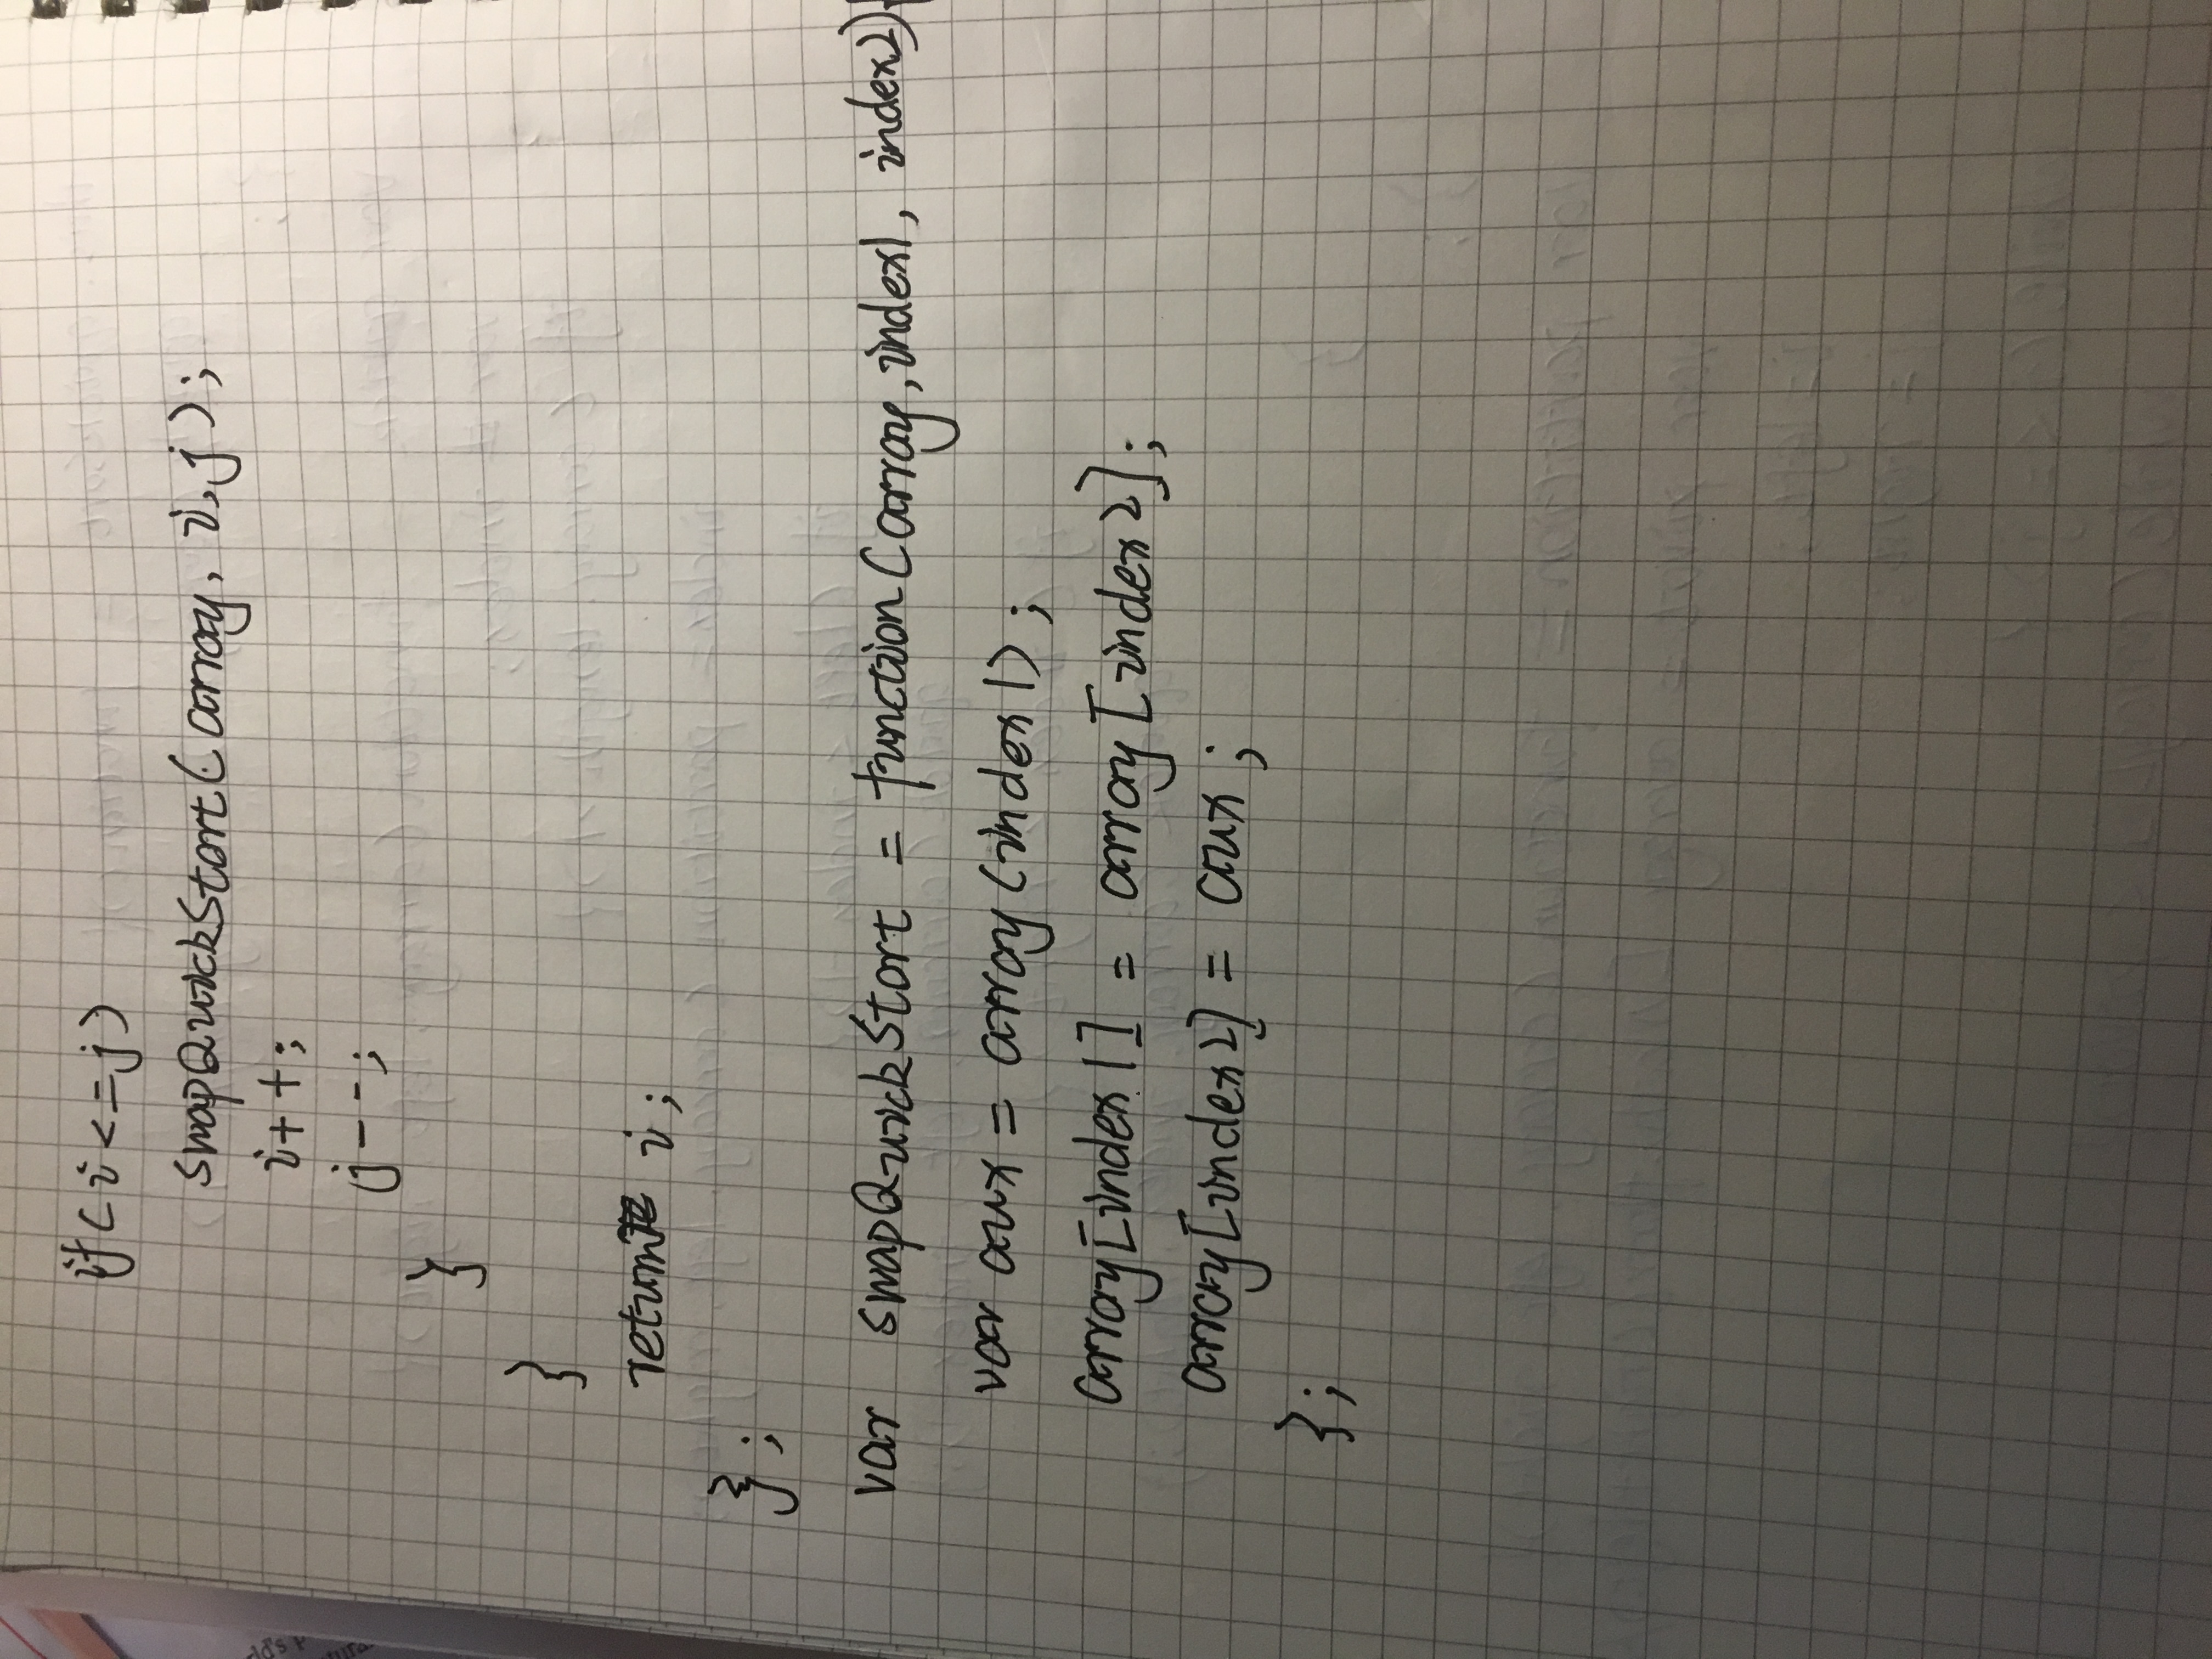 if(i<=j)
swapQuickStort(array, i,j);
i++;
j--;
}
}
return i;
};
var swapQuickStort = function(array,index1, index2){
var aux = array(index1);
array[index1] = array[index2];
array[index2] = aux;
};